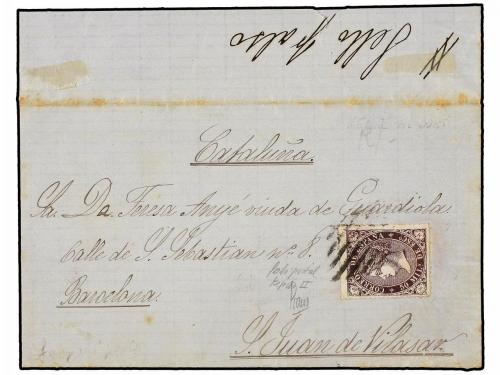 Sello falso
Cataluña.
Sra. Da. Teresa Anyé viuda de Guardiola
Calle de S. Sebastian nº 8.
Barcelona.
S. Juan de Vilasar
CORREOS DE ESPAÑA